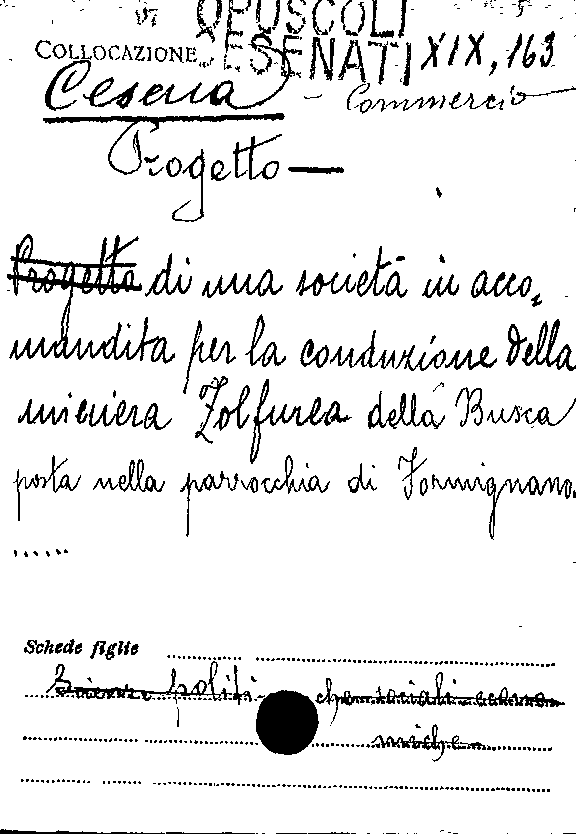 VI OPUSCOLI
COLLOCAZIONE CESENATI XIX, 163
Cesena - Commercio
Progetto —
Progetto di una società in acco,
mandita per la conduzione della
miniera Zolfurea della Busca
posta nella parrocchia di Formignano.
......
Schede figlie
Scienze politi che sociali econo
miche